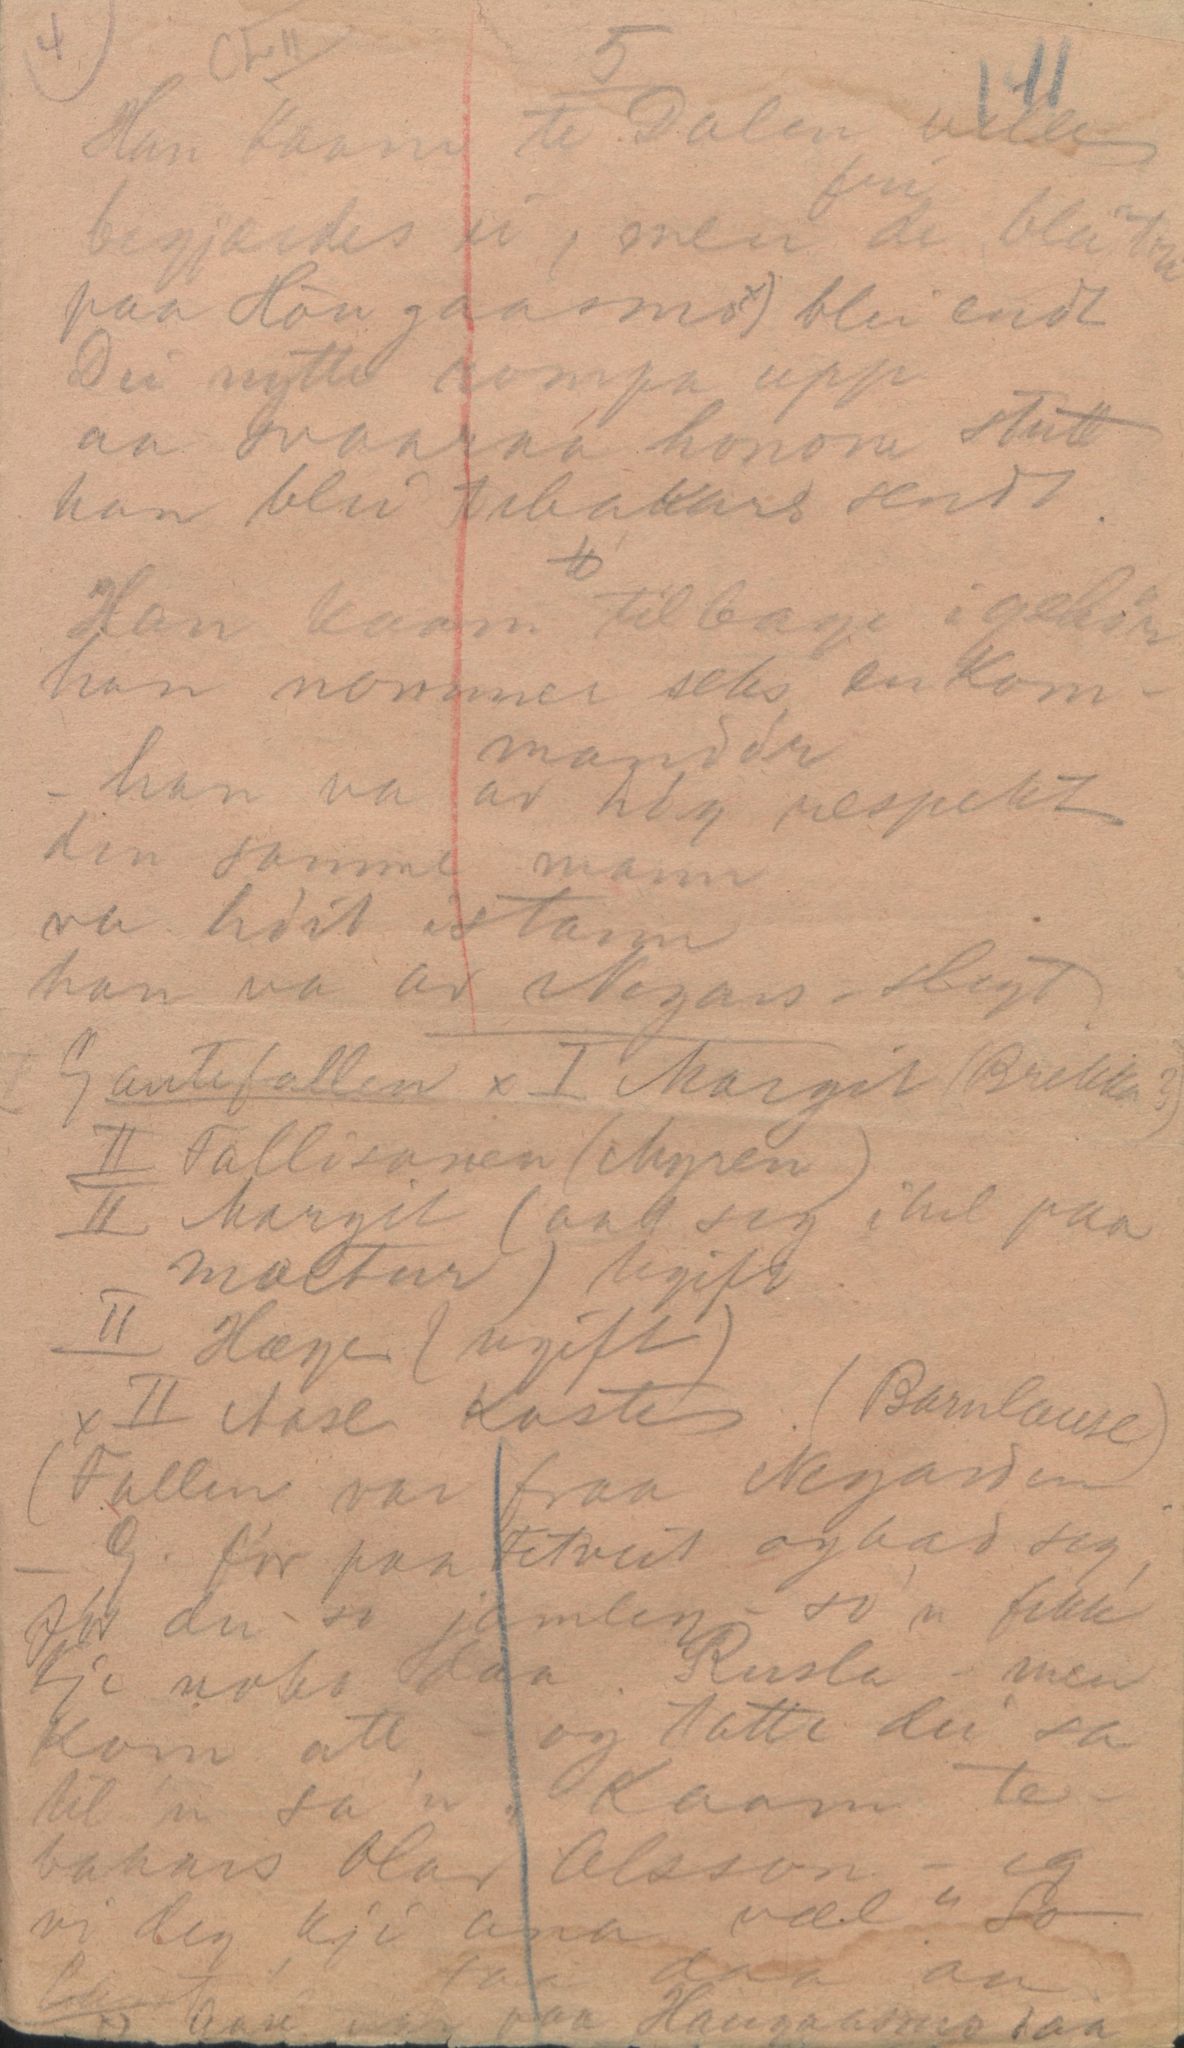 4 5 11
Han kaam te Dalen ville
fri
begjærdes ei, men de blei
paa Höugaasmo x) blei endt
Dei nytte rompa upp
aa svaaraa honom stutt
han blei tebakars sendt.
Han kaam tilbage igehör
han nommer seks, en Kom-
mandör
- han va av hög respekt
den samme mann
va höit istann
han va av Negars-slegt
Gautefallen x I Margit (Brekka?)
II Fallisanen (Myren)
II Margit (aat seg ihel paa
mæltur) Ugift
II Hæge (ugift)
x II Aase Kaste (Barnlause)
(Fallen var fraa Negarden
- G. för paa Fitveit og bad seg,
för du so jamleg - so'n fekk
kje noko daa. Rusla - men
kom att - og tatte dei sa
til 'n sa 'n. Kaam te-
bakars Olav Olsson - eg
vi deg kji ana væl" So
taa daa an
x) Aase var paa Haugaasmo daa